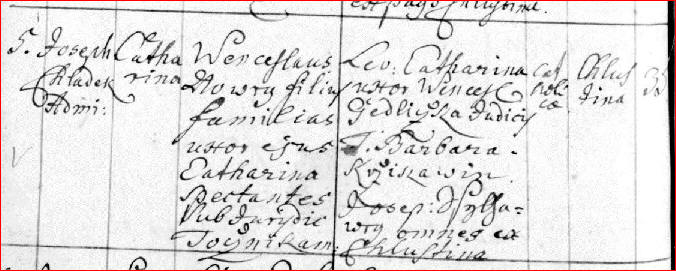 ex pago Chlustina.
5. Joseph Chladek Admi:
Catha
rina
Wenceslaus
Nowry filius
familias
uxor ejus
Catharina
spectantes
sub Juridic
Toÿnikam:
Lev: Catharina
uxor Wencesl
Jedliÿska Judicis
T. Barbara
Kržikawin
Josep: Sylha-
wy omnes ex
Chlustina
cat
holi
ca
Chlus
tina
35